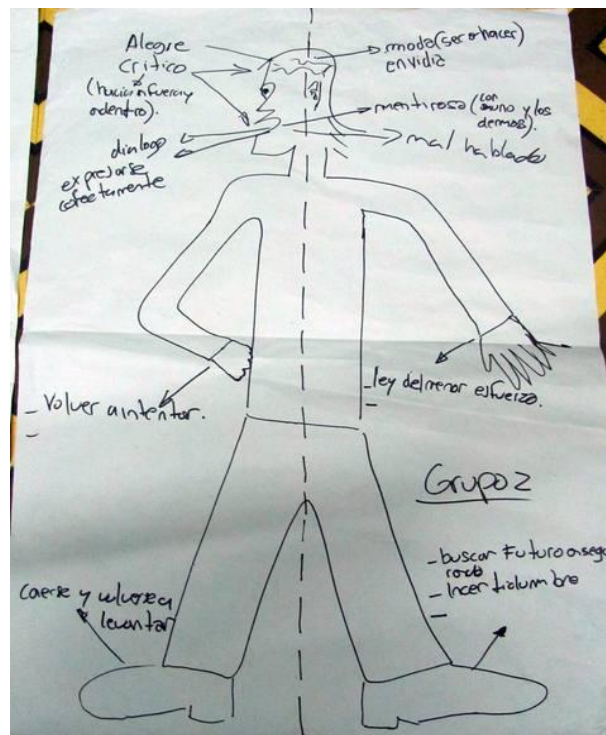 Alegre
Critico
(hacia afuera y
adentro).
dialogo
expresarse
correctamente
moda (ser o hacer)
envidia
mentirosa (con
uno y los
demas).
mal hablado
- Volver a intentar.
-
- ley del menor esfuerzo.
-
Grupo 2
- buscar Futuro asegu
rado
- Incertidumbre
-
Caerse y volverse a
levantar